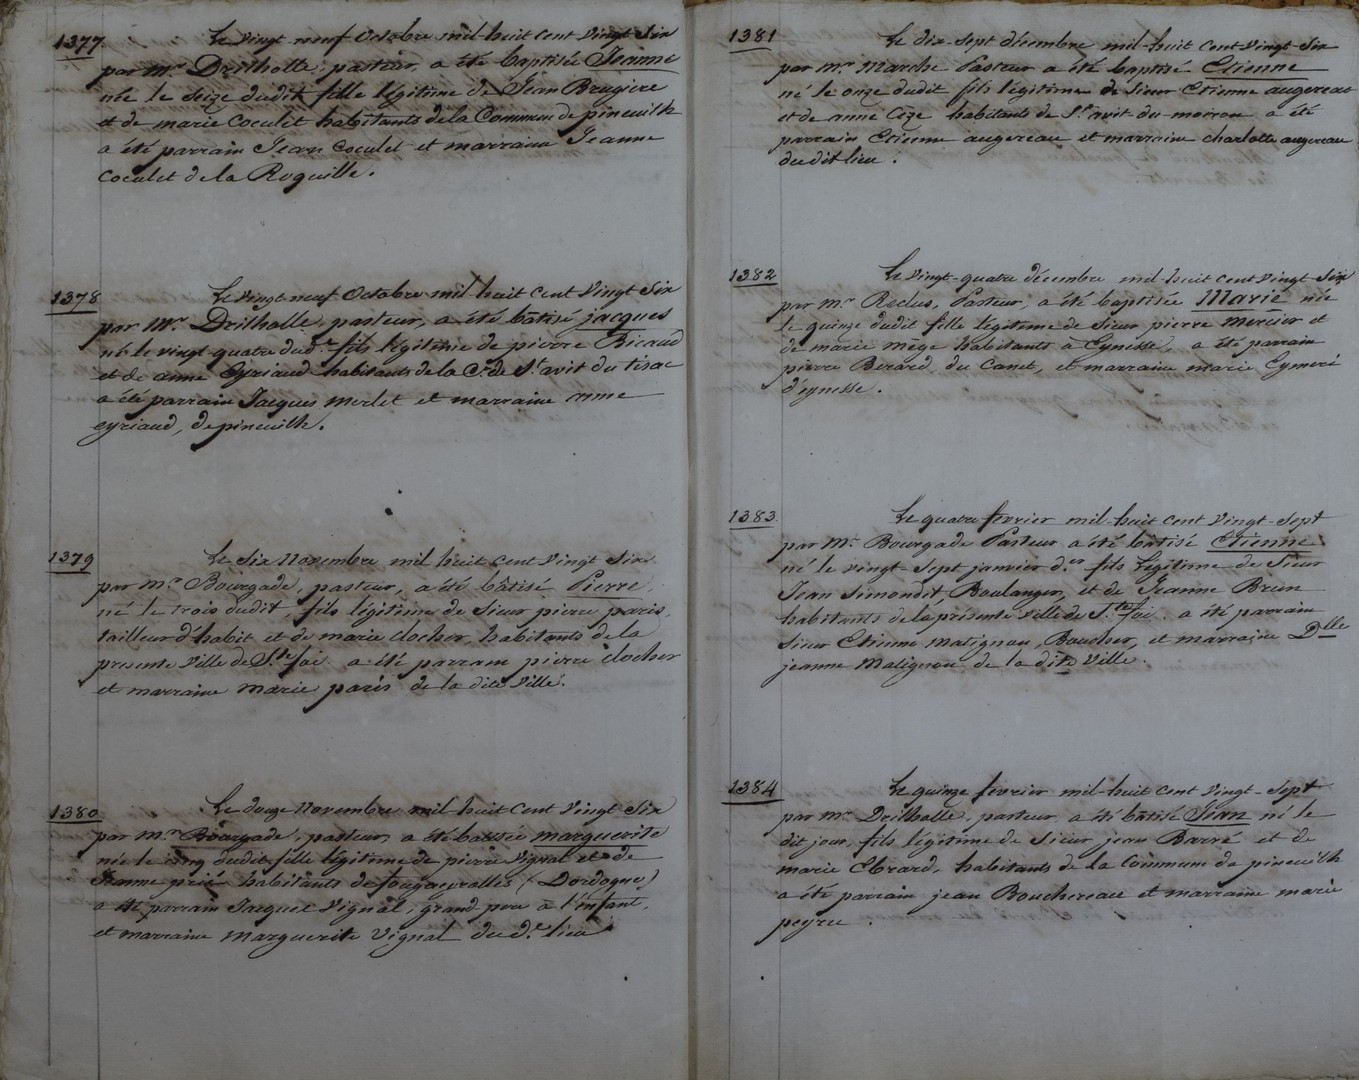 1377.
Le vingt-neuf Octobre mil-huit Cent Vingt Six
par Mr. Drilholle, pasteur, a été baptisée Jeanne
née le Seize dudit fille légitime de Jean Brugière
et de marie Coculet habitants de la Commune de pineuilh
a été parrain Jean Coculet et marraine Jeanne
Coculet de la Roquille.
1378
Le Vingt-neuf Octobre mil-huit Cent Vingt Six
par Mr. Drilholle, pasteur, a été bâtisé jacques
né le vingt-quatre dudt. fils légitime de pierre Ricaud
et de anne Eyriaud habitants de la Ce. de St. avit du tisac
a été parrain Jacques merlet et marraine anne
eyriaud, de pineuilh.
1379
Le Six Novembre mil huit Cent Vingt Six
par mr. Bourgade, pasteur, a été bâtisé Pierre,
né le trois dudit, fils légitime de Sieur pierre paris,
tailleur d'habit et de marie clocher, habitants de la
presente Ville de Ste. foi a été parrain pierre clocher
et marraine marie paris de la dite Ville.
1380
Le douze Novembre mil-huit Cent Vingt Six
par mr. Bourgade, pasteur, a été batisée marguerite
née le cinq dudit fille légitime de pierre Vignal et de
Jeanne habitants de fougueyrolles (Dordogne)
a été parrain Jacques Vignal, grand pere à l'enfant,
et marraine marguerite Vignal du dt. lieu
1381
Le dix-sept décembre mil-huit Cent Vingt-Six
par mr. Marche Pasteur a été baptisé Etienne
né le onze dudit fils légitime de Sieur Etienne augereau
et de anne habitants de St. avit du moiron a été
parrain Etienne augereau et marraine charlotte augereau
du dit lieu.
1382
Le vingt-quatre décembre mil-huit Cent Vingt-Six
par mr. Reclus, Pasteur, a été baptisée Marie née
le quinze dudit fille légitime de Sieur pierre Mercier et
de marie mège habitants à Eynesse, a été parrain
pierre Berard du Canet, et marraine marie Eymeri
d'eynesse.
1383.
Le quatre fevrier mil-huit Cent Vingt-Sept
par Mr. Bourgade Pasteur a été batisé Etienne
né le vingt Sept janvier der. fils Légitime de Sieur
Jean Simondit Boulanger, et de Jeanne Brun
habitants de la présente Ville de Ste. foi. a été parrain
Sieur Etienne Matignon, Boucher, et marraine Dlle
jeanne Matignon de la dite Ville.
1384
Le quinze fevrier mil-huit Cent Vingt-Sept
par mr. Drilholle, pasteur a été bâtisé Jean né le
dit jour, fils légitime de Sieur jean Barré et de
marie Ebrard, habitants de la Commune de pineuilh
a été parrain jean Bouchereau et marraine marie
peyre.